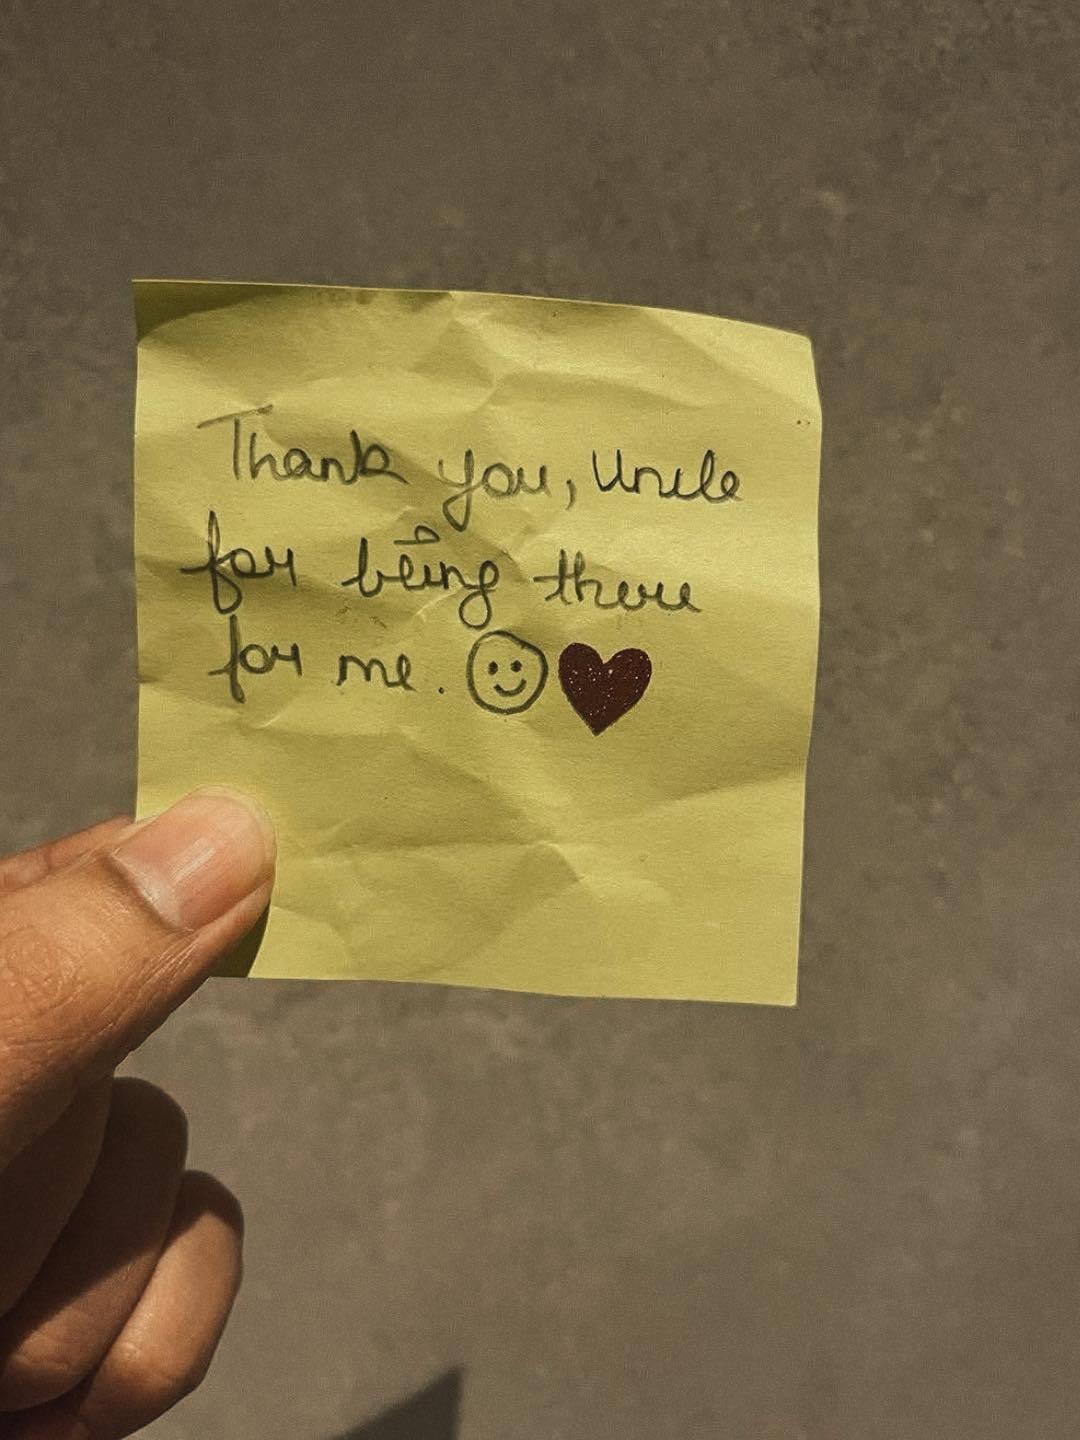 Thank you, Uncle
for being there
for me.